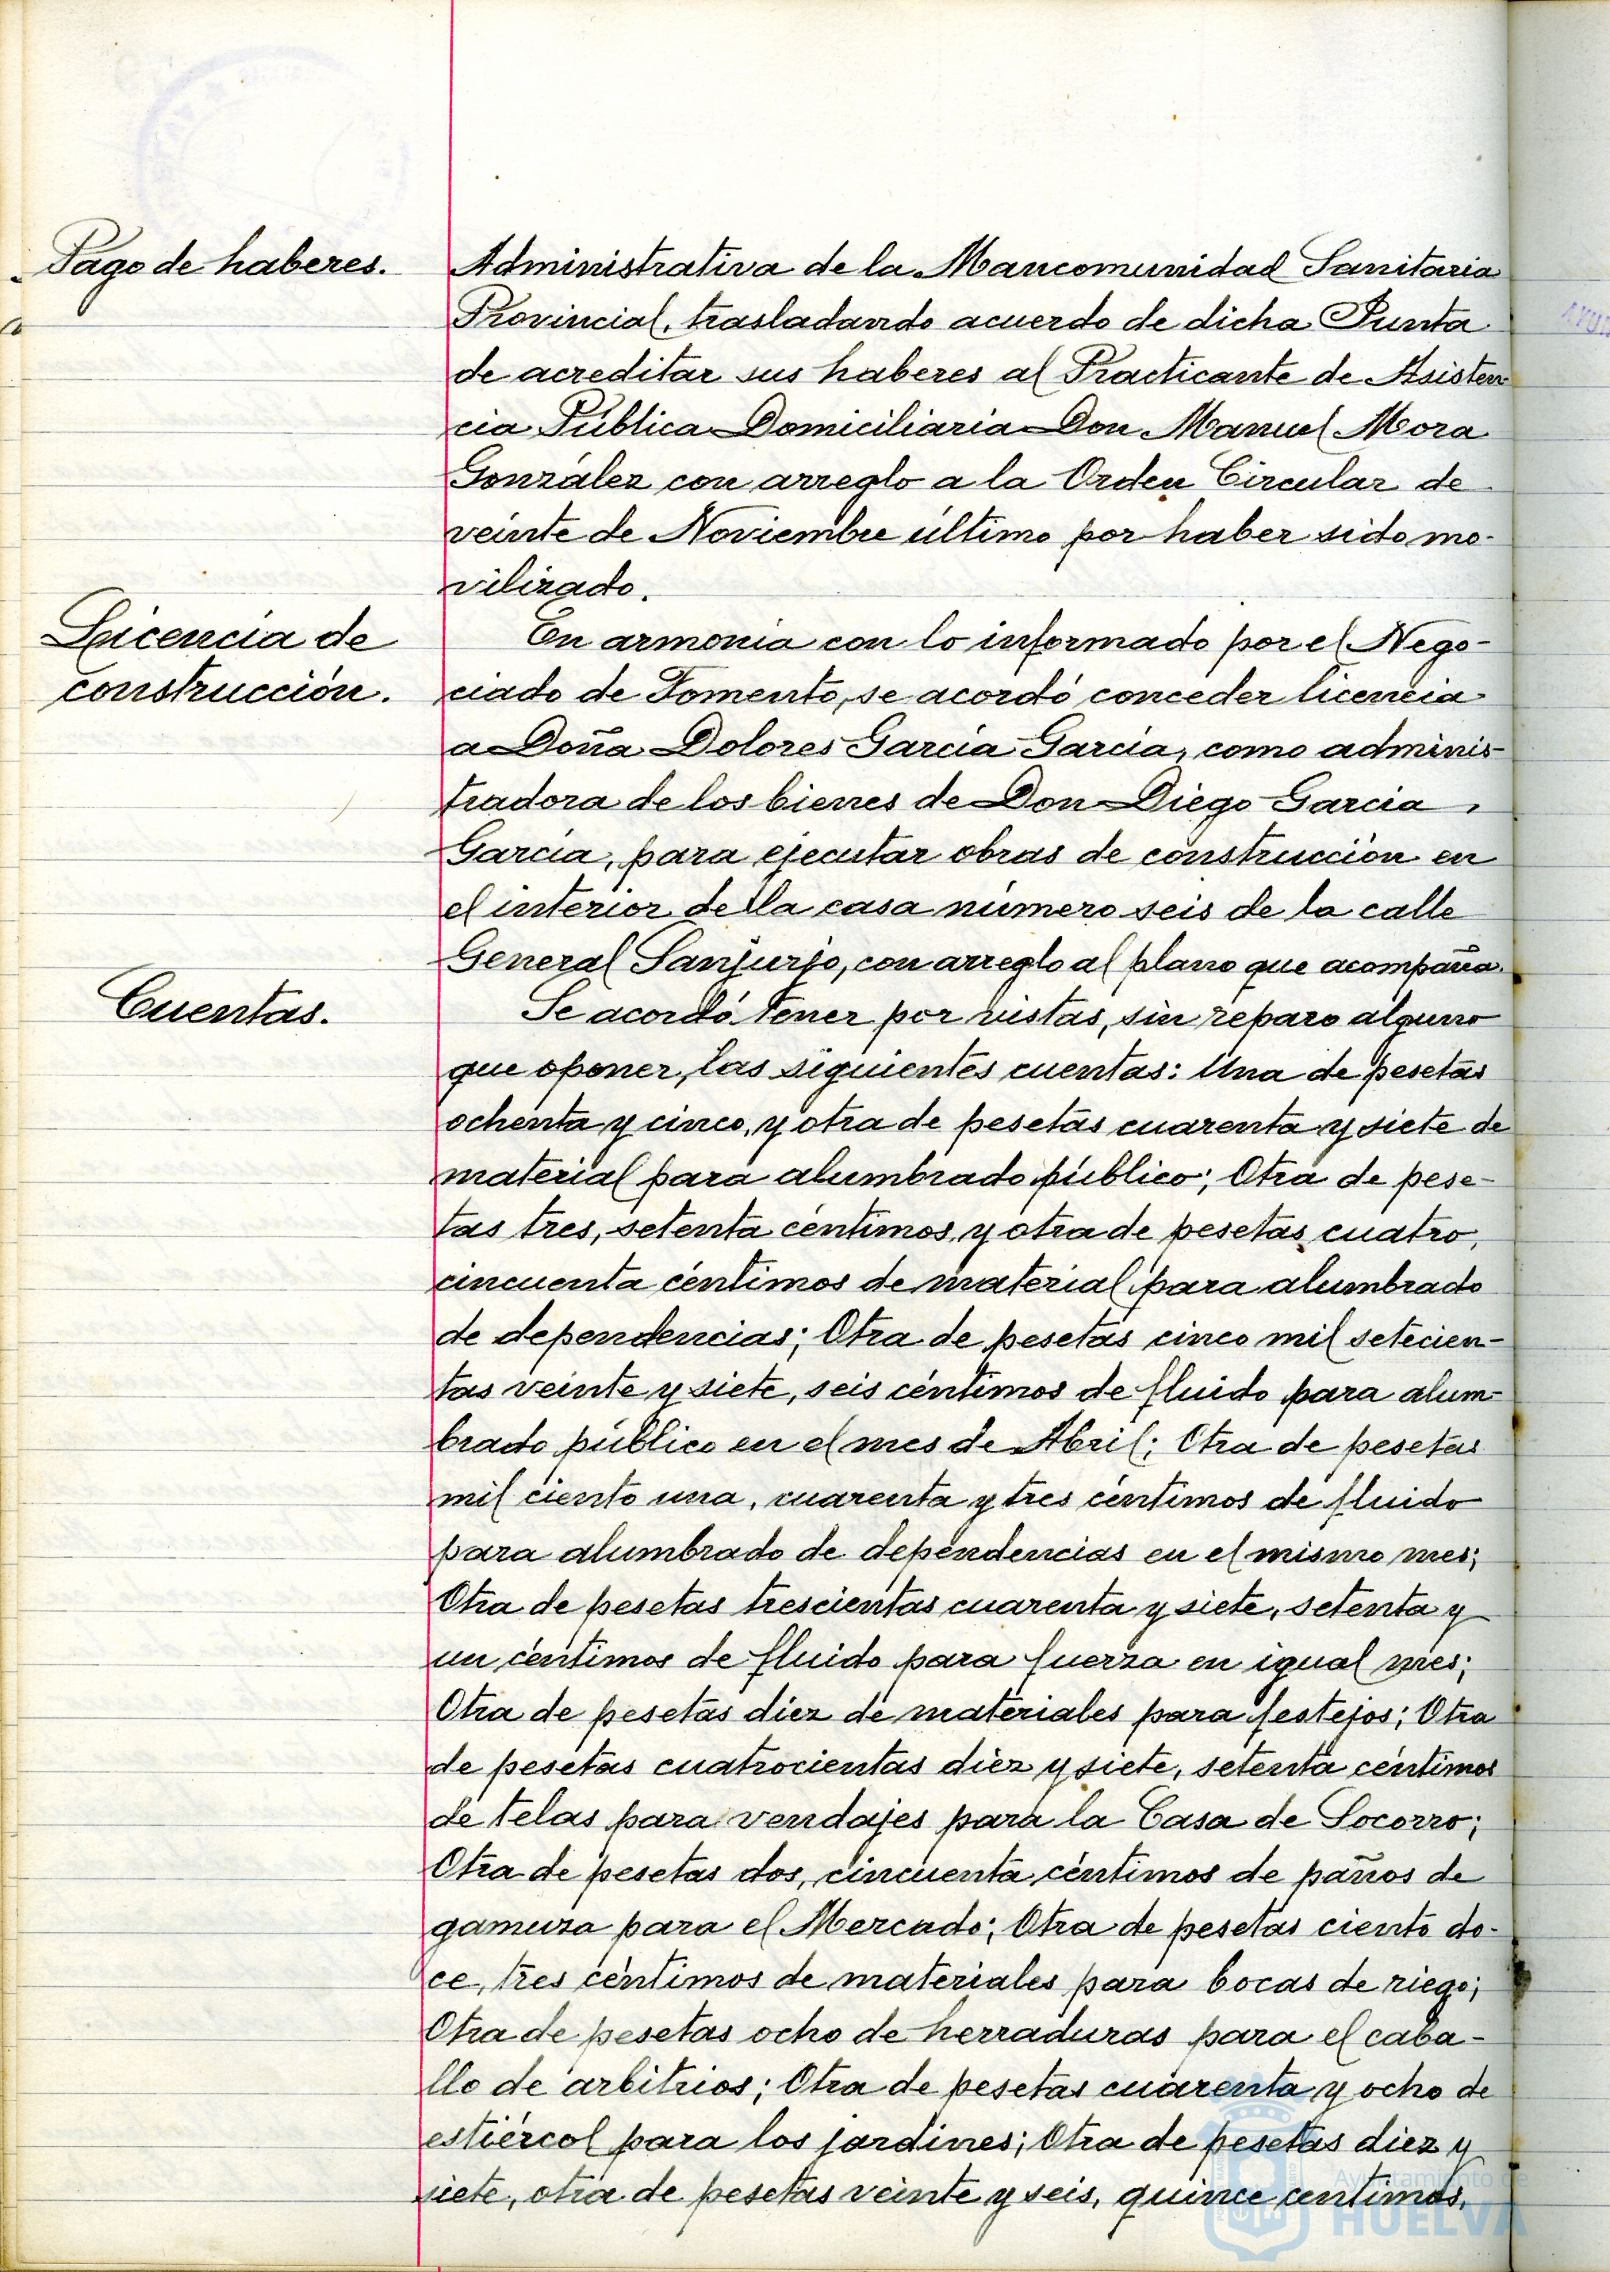 Pago de haberes.
Administrativa de la Mancomunidad Sanitaria
Provincial, trasladando acuerdo de dicha Junta
de acreditar sus haberes al Practicante de Asisten
cia Pública Domiciliaria Don Manuel Mora
González con arreglo a la Orden Circular de
veinte de Noviembre último por haber sido mo-
vilizado.
Licencia de
construcción.
En armonía con lo informado por el Nego-
ciado de Fomento, se acordó conceder licencia
a Doña Dolores García García, como adminis-
tradora de los bienes de Don Diego García
García, para ejecutar obras de construcción en
el interior de la casa número seis de la calle
General Sanjurjo, con arreglo al plano que acompaña.
Cuentas.
Se acordó tener por vistas, sin reparo alguno
que oponer, las siguientes cuentas: Una de pesetas
ochenta y cinco, y otra de pesetas cuarenta y siete de
material para alumbrado público; Otra de pese-
tas tres, setenta céntimos, y otra de pesetas cuatro,
cincuenta céntimos de material para alumbrado
de dependencias; Otra de pesetas cinco mil setecien-
tas veinte y siete, seis céntimos de fluido para alum-
brado público en el mes de Abril; Otra de pesetas
mil ciento una, cuarenta y tres céntimos de fluido
para alumbrado de dependencias en el mismo mes;
Otra de pesetas trescientas cuarenta y siete, setenta y
un céntimos de fluido para fuerza en igual mes;
Otra de pesetas diez de materiales para festejos; Otra
de pesetas cuatrocientas diez y siete, setenta céntimos
de telas para vendajes para la Casa de Socorro;
Otra de pesetas dos, cincuenta céntimos de paños de
gamuza para el Mercado; Otra de pesetas ciento do-
ce, tres céntimos de materiales para bocas de riego;
Otra de pesetas ocho de herraduras para el caba-
llo de arbitrios; Otra de pesetas cuarenta y ocho de
estiércol para los jardines; Otra de pesetas diez y
siete, otra de pesetas veinte y seis, quince centimos,
Ayuntamiento de
HUELVA